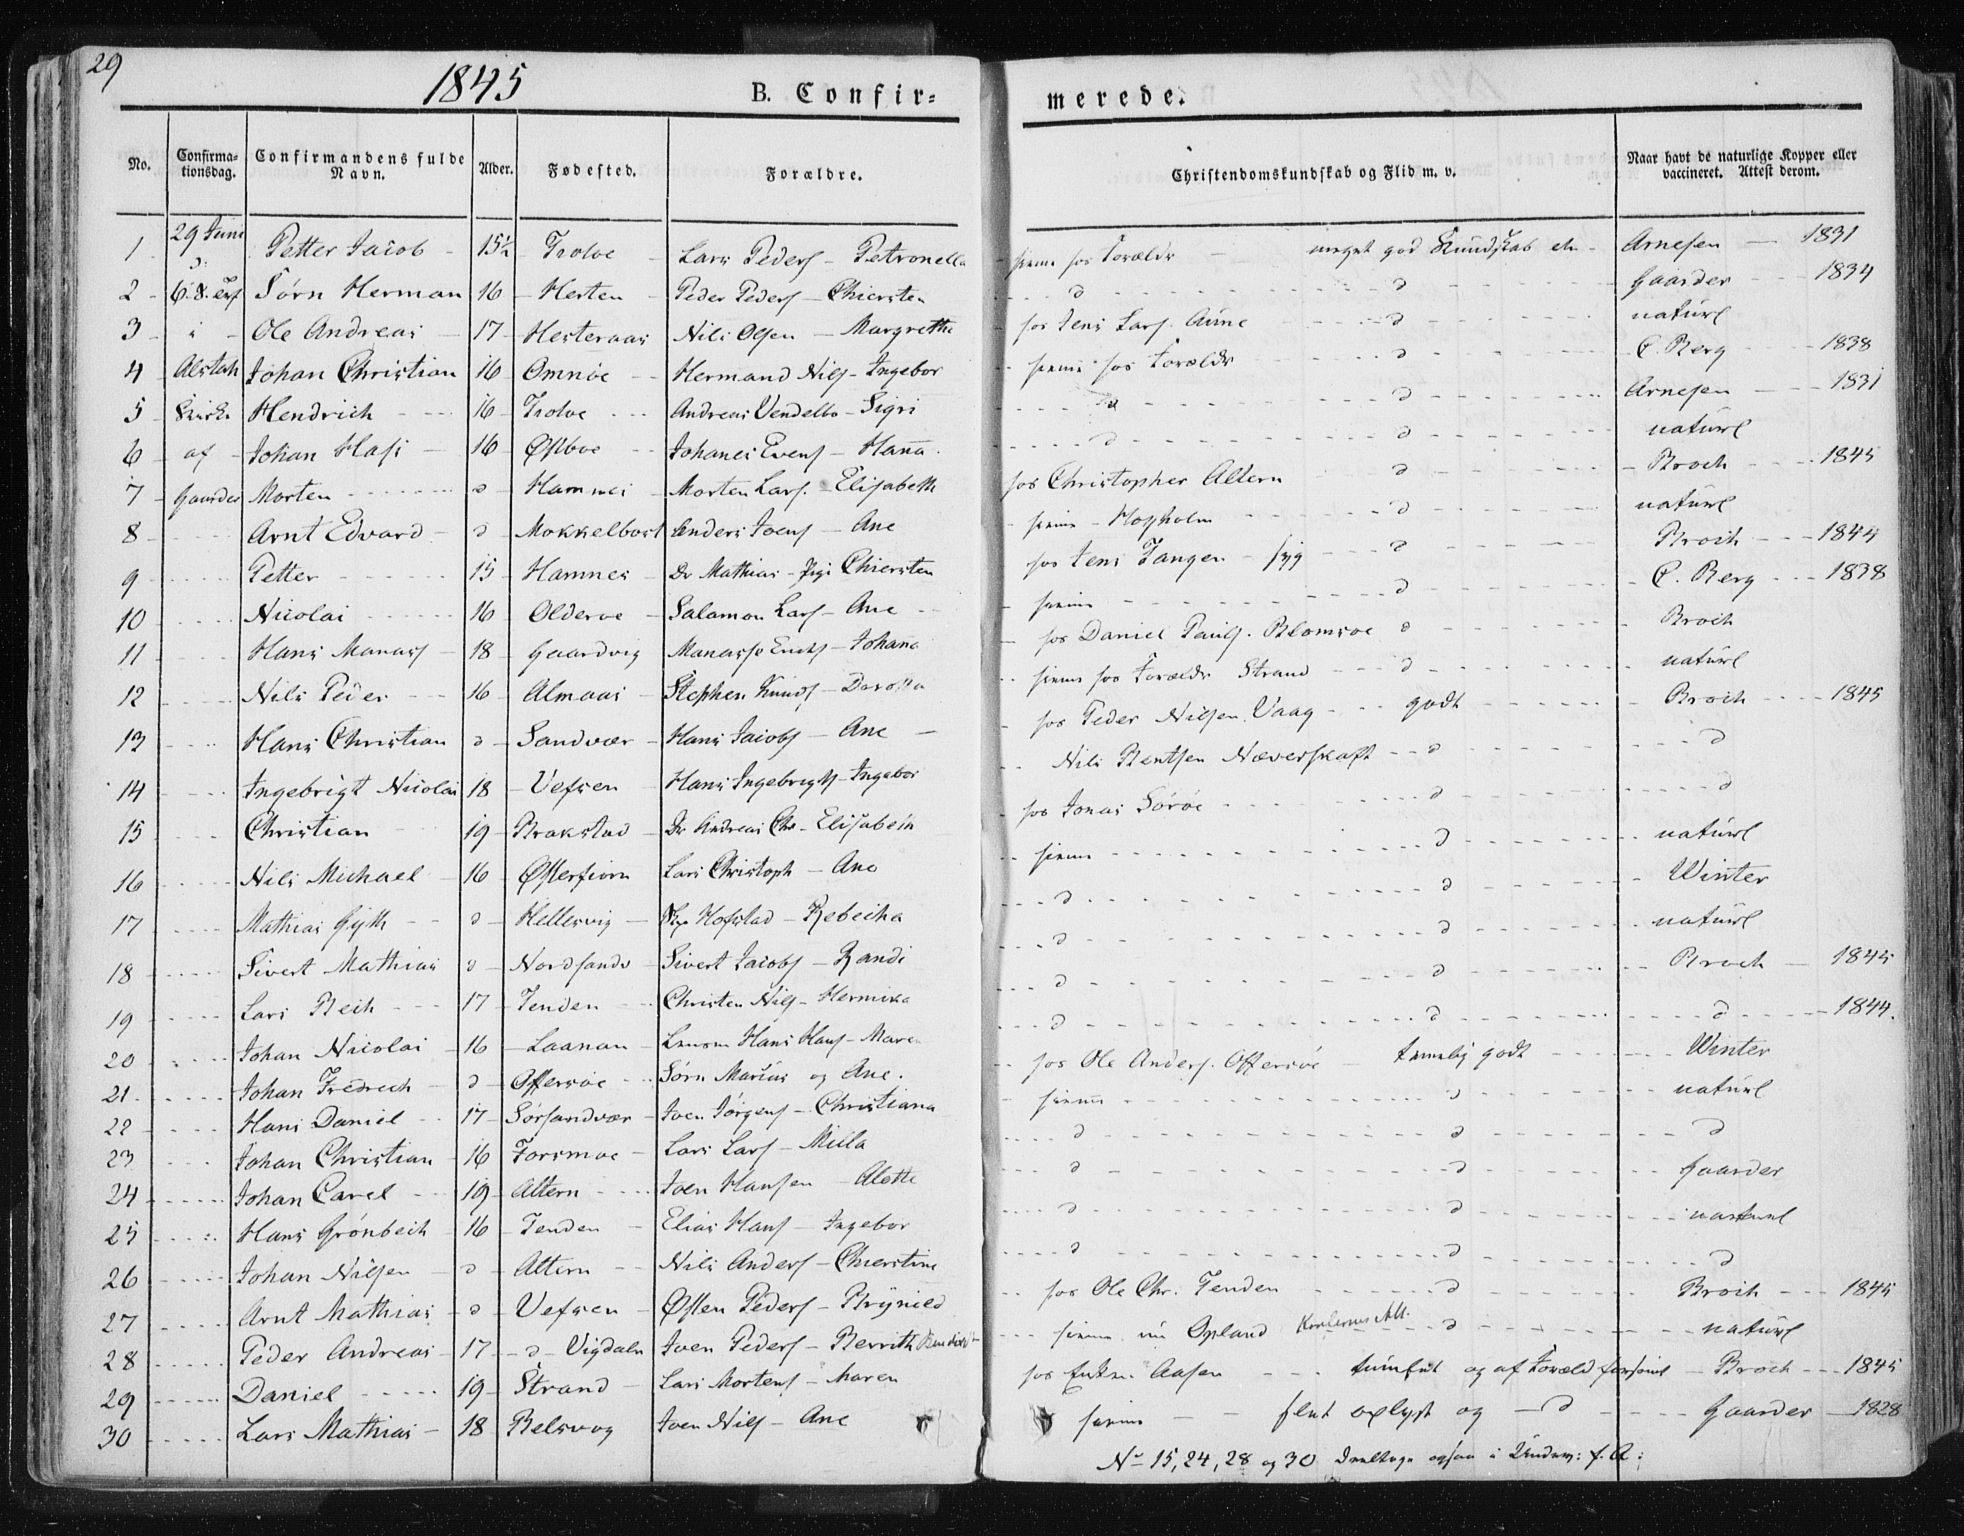 29
1845
B. Confir-
merede.
No. Confirmationsdag. Confirmandens fulde Navn. Alder. Fødested. Forældre. Christendomskundskab og Flid m. v. Naar havt de naturlige Kopper eller vaccineret. Attest derom.
1 29 Juni Petter Jacob 15½ Trolve Lars Peders - Petronella hiem hos Forældr meget god Kundskab Arnesen 1831
2 6.S. Søren Herman 16 Hesten Peder Peders - Chiersten d d Gaarder 1834
3 Ole Andreas 17 Hesteraas Nils Olsen - Margrethe hos Jens Lars. Aune d naturl
4 Alstah Johan Christian 16 Omnøe Hermand Nils - Ingebor hiem hos Forældr d C. Berg 1838
5 Kirke Hendrich 16 Trolve Andreas Vendelbo - Sigri d d Arnesen 1831
6 af Johan Hass 16 Østboe Johanes Evens - Hana d d naturl
7 Gaarder Morten d Hamnes Morten Lars. - Elisabeth hos Christopher Altern d Broch 1845
8 Arnt Edvard d Mokkelbost Anders Joens - Ane hiem - Hopholm d naturl
9 Petter 15 Hamnes Dr Mathias - Pigi Chiersten hos Jens Tangen d Broch 1844
10 Nicolai 16 Olderoe Salamon Lars - Ane hiem d C. Berg 1838
11 Hans Manass 18 Gaardvig Manasse - Johana hos Daniel Pauls. Blomsøe d Broch
12 Nils Peder 16 Almaas Stephen Knuds - Dorothea hiem hos Forældr Strand d naturl
13 Hans Christian d Sandvær Hans Jacobs - Ane hos Peder Nilsen Vaag godt Broch 1845
14 Ingebrigt Nicolai 18 Vefsen Hans Ingebrigts - Ingebor Nils Bentsen Næverskaft d d
15 Christian 19 Brakstad Dr Andreas Chr - Elisabeth hos Jonas Sørøe d d
16 Nils Michael 16 Østerfiorn Lars Christoph - Ane hiem d naturl
17 Mathias Gyth d Hellesvig Hofstad - Rebecka d d Winter
18 Sivert Mathias d Nordsandv Sivert Jacobs - Randi d d naturl
19 Lars Beth 17 Tenden Christen Nils - Hermika d d Broch 1845
20 Johan Nicolai 16 Laanan Hans Hans - Maren d d d 1844.
21 Johan Fredrech d Offersøe Sørn Marius og Ane. hos Ole Anders. Offersøe temelig godt Winter
22 Hans Daniel 17 Sørsandvær Joen Jørgens - Christiana hiem d naturl
23 Johan Christian 16 Forsmoe Lars Lars - Milla d d d
24 Johan Carel 19 Altern Joen Hansen - Alette d d Gaarder
25 Hans Grønbech 16 Tenden Elias Hans - Ingebor d d naturl
26 Johan Nilsen d Altern Nils Anders - Chierstine d d d
27 Arnt Mathias d Vefsen Østen Peders - Brynild hos Ole Chr. Tenden d Broch 1845
28 Peder Andreas 17 d Vigdaln Joen Peders - Berrith hiem nu Opland d naturl
29 Daniel 19 Strand Lars Mortens - Maren hos Aasen og af Foræld forsømt Broch 1845
30 Lars Mathias 18 Belsvog Joen Nils - Ane hiem slet oplyst og d Gaarder 1828
No 15, 24, 28 og 30 Deeltage ogsaa i Underv: f. A: